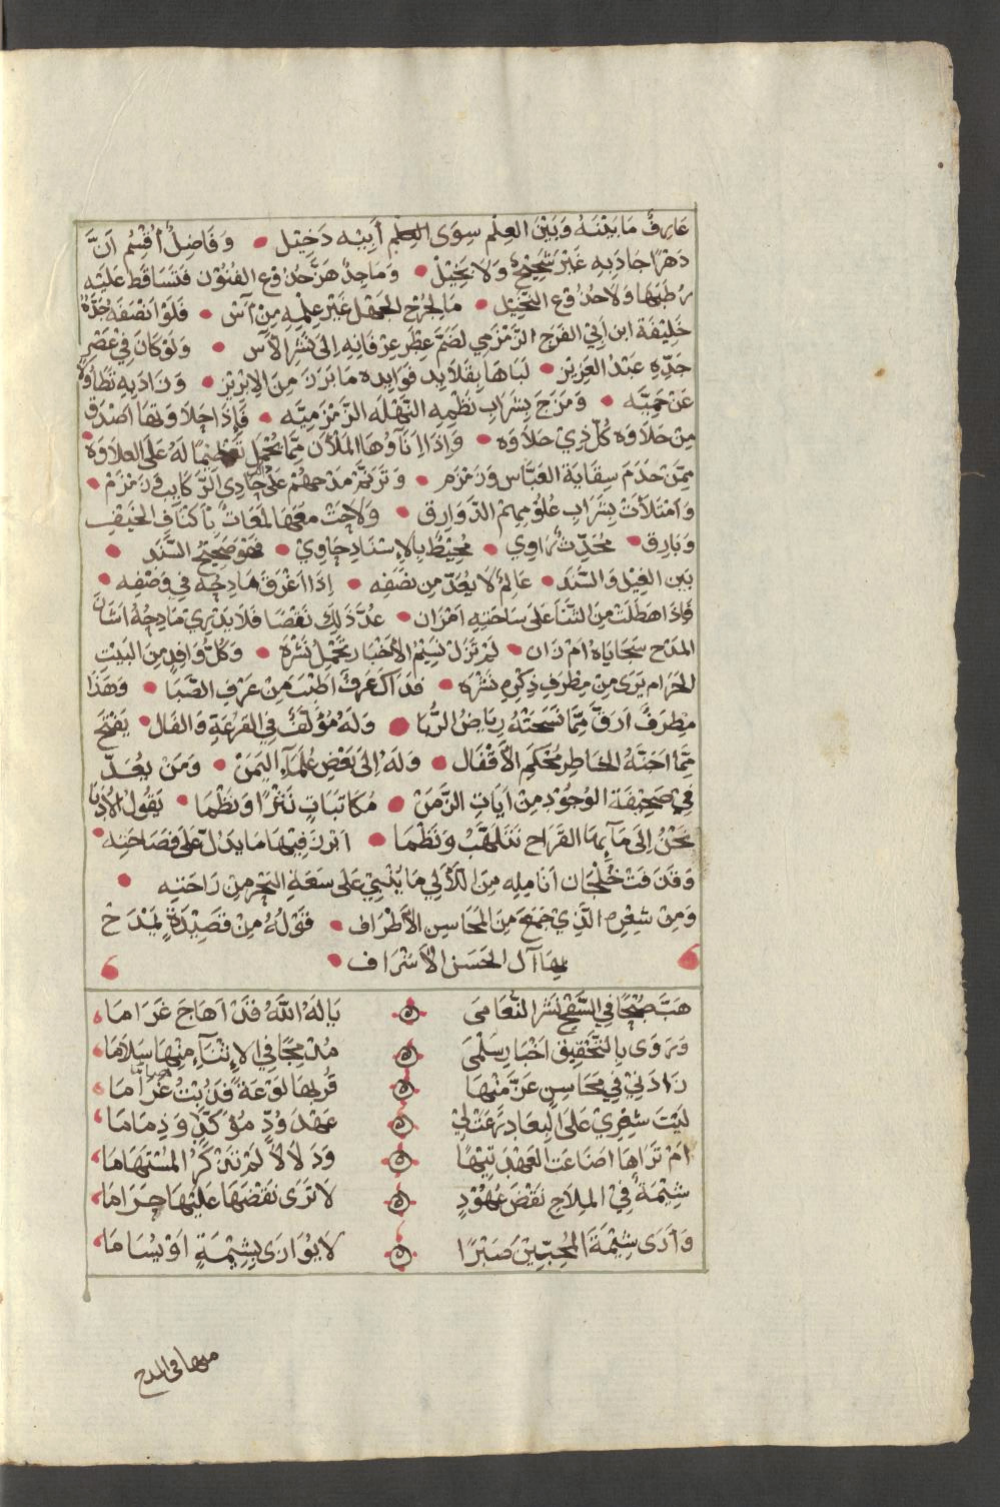 عَارِفٌ مَا بَيْنَهُ وَبَيْنَ العِلْمِ سِوَى العِلْمِ أَبِيْه دَخِيْل • وَفَاضِلٌ أُقْسِمُ اَنَّ
دَهْرًا جَادَ بِهِ غَيْرُ شَحِيْحٍ وَلَا بَخِيْل • وَمَاجِدٌ هَزَّ جُذُوْعَ الفُنُوْن فَتَسَاقَطَ عَلَيْه
رُطَبُهَا وَلَا جُذُوْعَ النَّخِيْل • مَا لِجُرْحِ الجَهْل غَيْرَ عِلْمِهِ مِنْ آسٍ • فَلَوْ اَنْصَفَهُ جَدُّهُ
خَلِيْفَة ابن اَبِي الفَرَج الزَّمْزَمِي لَضَمَّ عِطْرَ عِرْفَانِهِ اِلَى نَشْرِ الآس • وَلَوْ كَانَ فِيْ عَصْرِ
جَدِّهِ عَبْدُ العَزِيْز • لَبَاهَا بِقَلَايِد فَوَايِده مَا بَرَزَ مِنَ الاِبْرِيْز • وَزَادَ بِهِ تَطَاوُلًا
عَنْ حَمِيَّه • وَمَزَجَ بِشَرَابِ نَظْمِهِ النَّهْلَه الزَّمْزَمِيَّه • فَإِذَا حَلَاوَتهَا اَصْدَق
مِنْ حَلَاوَه كُلّ ذِيْ حَلَاوَه • وَاِذَا اِنَآوُهَا المَلْآن مِمَّا يُحْمَل تَعْظِيْمًا لَهُ عَلَى العلَاوَة •
مِمَّن خَدَمَ سِقَايَة العَبَّاس وَزَمْزَم • وَتَرَنَّمَ بِمَدْحِهِمْ عَلَى حَادِي الرَّكَايِب وَزَمْزَمْ •
وَامْتَلَأَتْ بِشَرَابِ عُلُوْمِهِمُ الدَّوَارِق • وَلَاحَتْ مَعَهَا لَمَعَاتٌ بِاَكْنَافِ الخَيْفِ
وَبَارِق • مُحَدِّثٌ رَاوِي • مُحِيْطٌ بِالاِسْنَادِ حَاوِيْ • فَهُوَ صَحِيْحُ السَّنَد •
بَين الغِيْلِ وَالسَّنَد • عَالِمٌ لَا يُعَدّ مِن نصَفِه • اِذَا اَغْرَقَ مَادِحُهُ فِي وَصْفِه •
فَاِذَا هَطَلَتْ مِنَ الثَّنَا عَلَى سَاحَتِهِ اَمْزَان • عُدَّ ذَلِكَ نَقْصًا فَلَا يَدْرِيْ مَادِحُهُ اَشَانَ
المَدْح سَجَايَاهُ اَمْ زَان • لَمْ تَزَلْ نَسِيْمُ الاَخْبَار تَحْمِلُ نَشْرَه • وَكُلُّ وَافِدٍ مِنَ البَيْتِ
الحَرَام يَرَى مِنْ مِطْرَفِ ذِكْرِهِ نَشْرَه • فَذَاكَ عَرفٌ اَطْيَبُ مِنْ عَرْفِ الصَّبَا • وَهَذَا
مِطرَفٌ اَرَقّ مِمَّا نَسَجَتْهُ رِيَاضُ الرُّبَا • وَلَهُ مُؤَلَّفٌ فِي القَرْعَةِ وَالفَال • يَفْتَح
مِمَّا اَجَنَّهُ الخَاطِر مُحْكَم الأَقْفَال • وَلَهُ اِلَى بَعْضِ عُلَمَاءِ اليَمَنْ • وَمَنْ يُعَدّ
فِي صَحِيْفَة الوُجُوْد مِنْ آيَاتِ الزَّمَنْ • مُكَاتَبَاتٍ نَثْرًا وَنَظْمَا • يَقُوْلُ الاُدَبَا
نَحْنُ اِلَى مَآيِهَا القَرَاح نَتَلَهَّبُ وَنَظْمَا • اَبْرَزَ فِيْهَا مَا يَدُلّ عَلَى فَصَاحَتِه •
وَقَذَفَتْ خُلْجَان اَنَامِلِهِ مِنَ اللّآلِي مَا يُنْبِيْ عَلَى سَعَةِ البَحْرِ مِنْ رَاحَتِهِ •
وَمِنْ شِعْرِه الَّذِيْ جَمَعَ مِنَ المَحَاسِنِ الأَطْرَاف • قَوْلُهُ مِنْ قَصِيْدَةٍ يَمْدَحْ
بِهَا آل الحَسَن الاَشْرَاف •
هَبَّ صُبْحًا فِي السَّفْح نَشْرُ النُّعَامَى    يَا لَهُ اللَّهُ قَدْ اَهَاجَ غَرَامَا
وَرَوَى بِالتَّحْقِيْقِ اَخْبَارَ سَلْمَى    مُدْمِجًا فِي الاِنْتِشَاءِ مِنْهَا سَلَامَا
زَادَنِيْ فِيْ مَحَاسِنٍ عَزَّ مِنْهَا    قُرْبُهَا لَوْعَةً فَذُبْتُ غَرَامَا
لَيْتَ شِعْرِيْ عَلَى البِعَاد رَعَتْ لِيْ    عَهْدَ وُدٍّ مُؤَكَّدٍ وَذِمَامَا
اَمْ تَرَاهَا اَضَاعَت العَهْدَ تِيْهًا    وَدَلَالًا لَمْ تَذْكُرِ المُسْتَهَامَا
شِيْمَةٌ فِيْ المِلَاحِ نَقْضُ عُهُوْدٍ    لَا تَرَى نَقْضَهَا عَلَيْهَا حَرَامَا
وَاَرَى شِيْمَةَ المُحِبِّيْنَ صَبْرًا    لَا يُوَارَى بِشِيْمَةٍ اَوْ يُسَامَا
منها في المدح